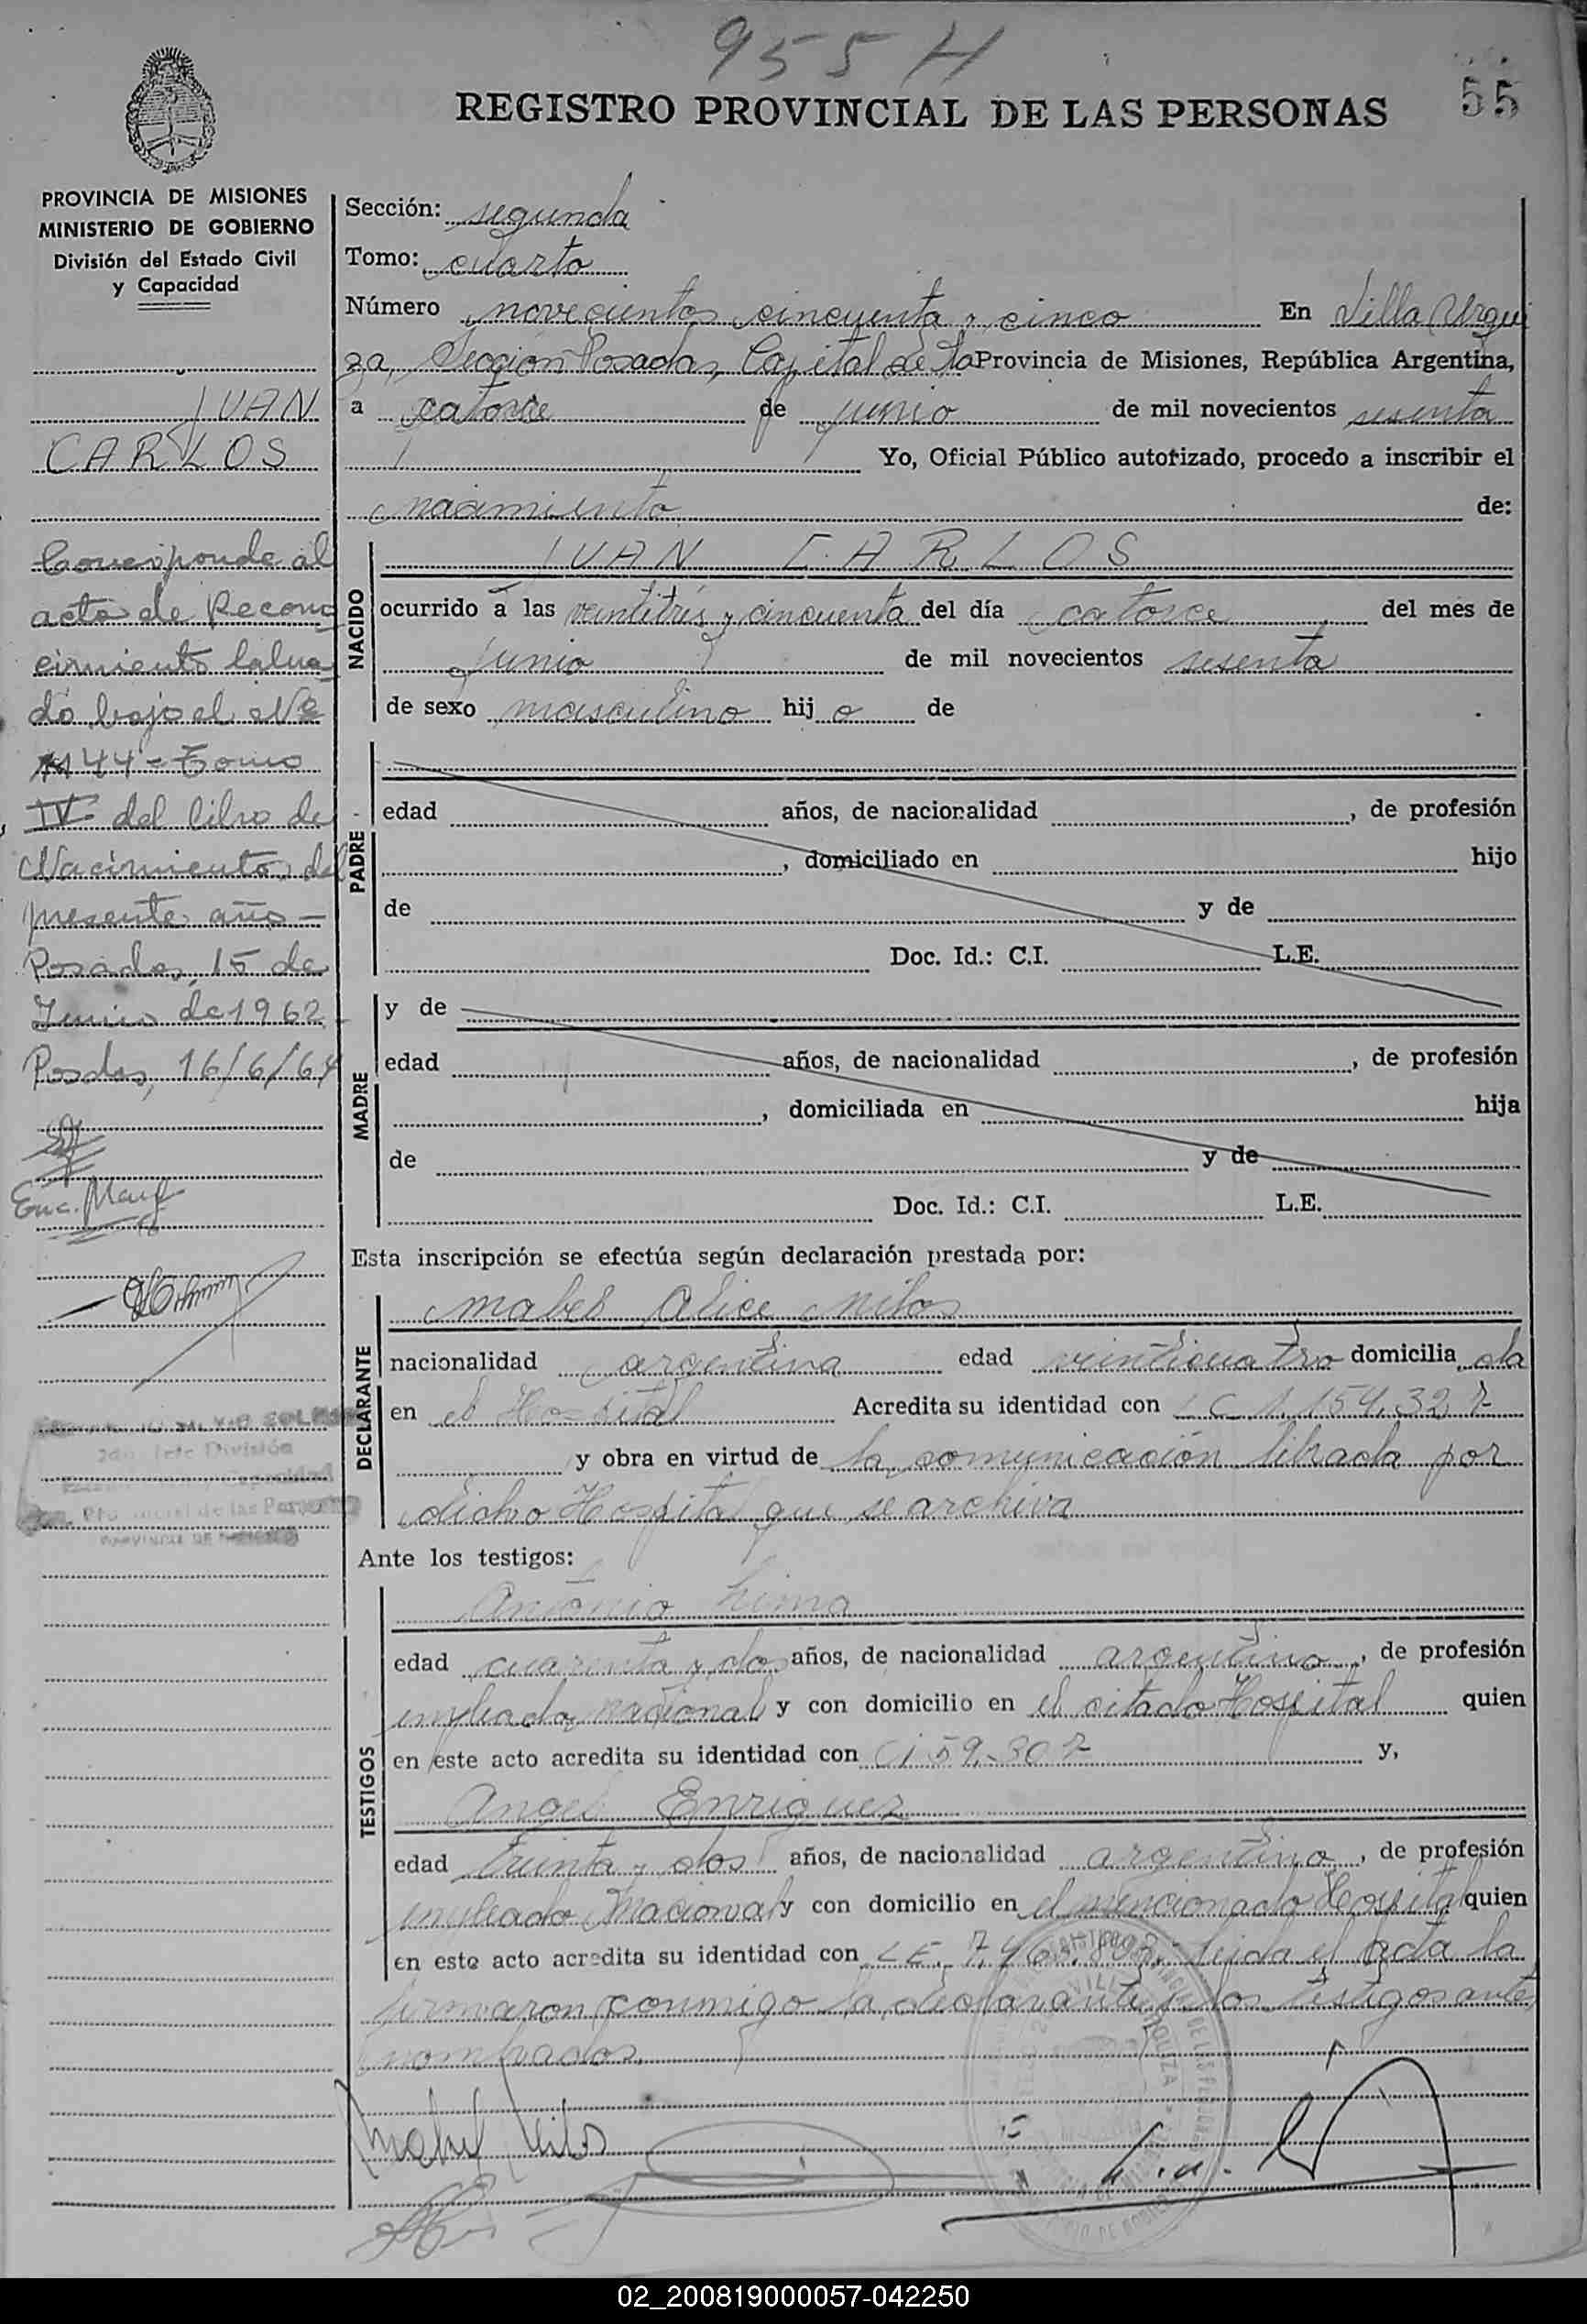 955 H
55
REGISTRO PROVINCIAL DE LAS PERSONAS
PROVINCIA DE MISIONES
MINISTERIO DE GOBIERNO
División del Estado Civil
y Capacidad
JUAN
CARLOS
Corresponde al
acta de Recono
cimiento labra
do bajo el Nº
1144 - Tomo
IV del libro de
Nacimientos del
presente año -
Posadas, 15 de
Junio de 1962
Posdas, 16/6/64
Sección: segunda
Tomo: cuarto
Número novecientos cincuenta y cinco En Villa Urqui
za, Sección Posadas, Capital de la Provincia de Misiones, República Argentina,
a catorce de junio de mil novecientos sesenta
Yo, Oficial Público autorizado, procedo a inscribir el
nacimiento de:
NACIDO
JUAN CARLOS
ocurrido a las veintitrés y cincuenta del día catorce del mes de
junio de mil novecientos sesenta
de sexo masculino hij o de
PADRE
edad años, de nacionalidad , de profesión
, domiciliado en hijo
de y de
Doc. Id.: C.I. L.E.
MADRE
y de
edad años, de nacionalidad , de profesión
, domiciliada en hija
de y de
Doc. Id.: C.I. L.E.
Esta inscripción se efectúa según declaración prestada por:
DECLARANTE
Mabel Alice
nacionalidad argentina edad veinticuatro domicilia da
en el Hospital Acredita su identidad con C 1.154.327
y obra en virtud de la comunicación librada por
dicho Hospital que se archiva
Ante los testigos:
TESTIGOS
Antonio Lima
edad cuarenta y dos años, de nacionalidad argentino, de profesión
empleado nacional y con domicilio en el citado Hospital quien
en este acto acredita su identidad con CI 59.307 y,
Angel Enriquez
edad treinta y dos años, de nacionalidad argentino, de profesión
empleado Nacional y con domicilio en el mencionado Hospital quien
en este acto acredita su identidad con LE. Leida el acta la
firmaron conmigo la declarante y los testigos ante
nombrados.
02_200819000057-042250